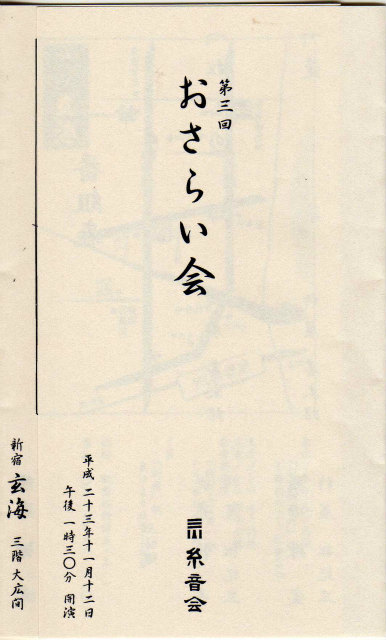 第三回
おさらい会
糸音会
平成二十三年十一月十二日
午後一時三〇分 開演
新宿 玄海 三階大広間